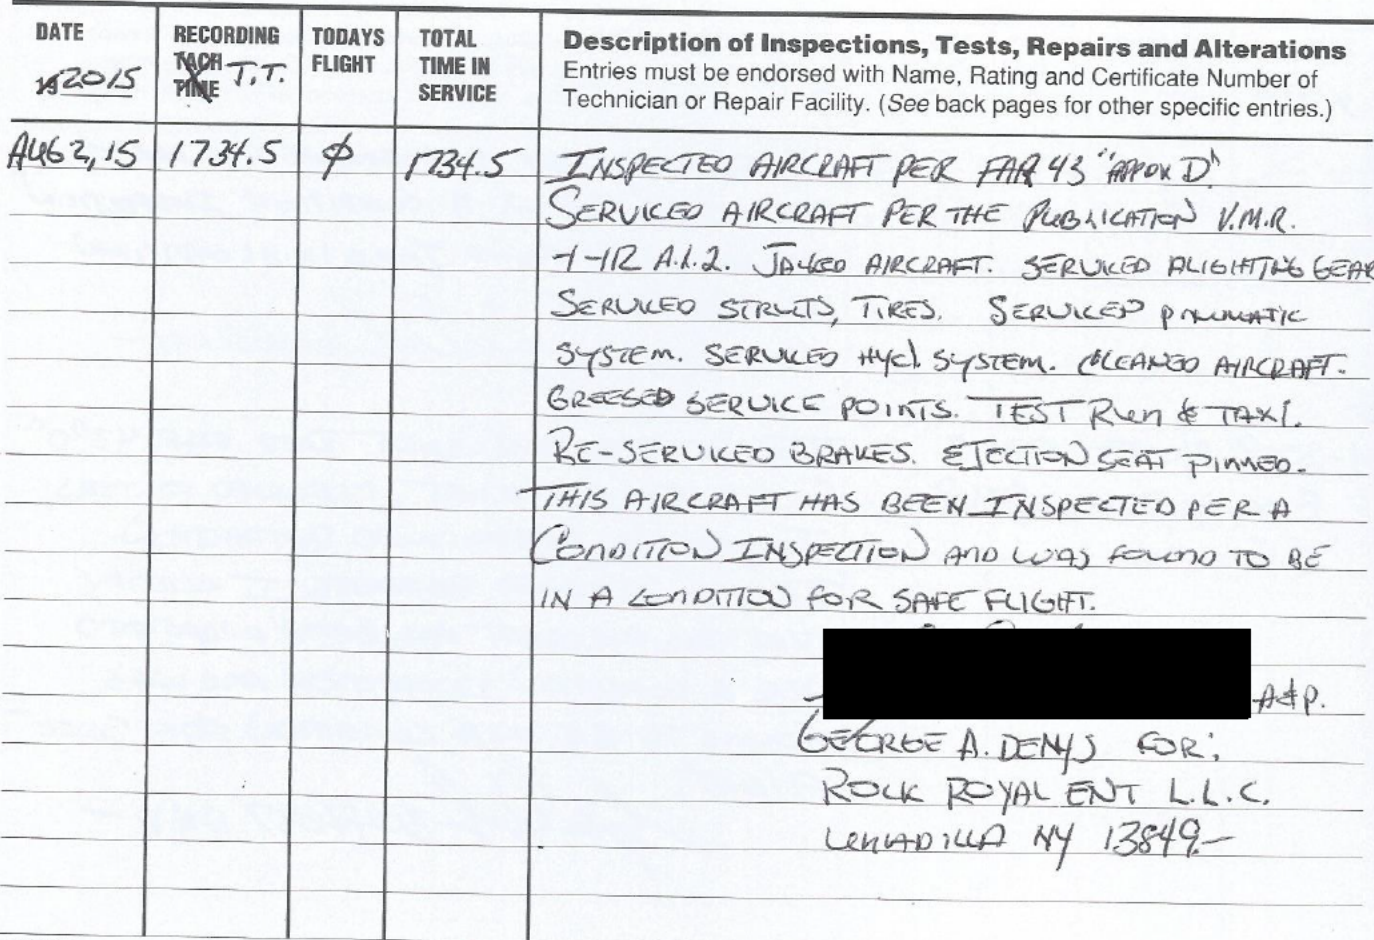 DATE RECORDING TODAYS TOTAL Description of Inspections, Tests, Repairs and Alterations
TACH T.T. FLIGHT TIME IN Entries must be endorsed with Name, Rating and Certificate Number of
19 2015 TIME SERVICE Technician or Repair Facility. (See back pages for other specific entries.)
AUG 2, 15 1734.5 ϕ 1734.5 INSPECTED AIRCRAFT PER FAR 43 "APPDX D".
SERVICED AIRCRAFT PER THE PUBLICATION V.M.R.
-1-112 A.1.2. JACKED AIRCRAFT. SERVICED ALIGHTING GEAR
SERVICED STRUTS, TIRES. SERVICED PNUMATIC
SYSTEM. SERVICED Hyd. SYSTEM. CLEANED AIRCRAFT.
GREESED SERVICE POINTS. TEST RUN & TAXI.
RE-SERVICED BRAKES. EJECTION SEAT PINNED.
THIS AIRCRAFT HAS BEEN INSPECTED PER A
CONDITION INSPECTION AND WAS FOUND TO BE
IN A CONDITION FOR SAFE FLIGHT.
A&P.
GEORGE A. DENYS FOR:
ROCK ROYAL ENT L.L.C.
UNADILLA NY 13849.